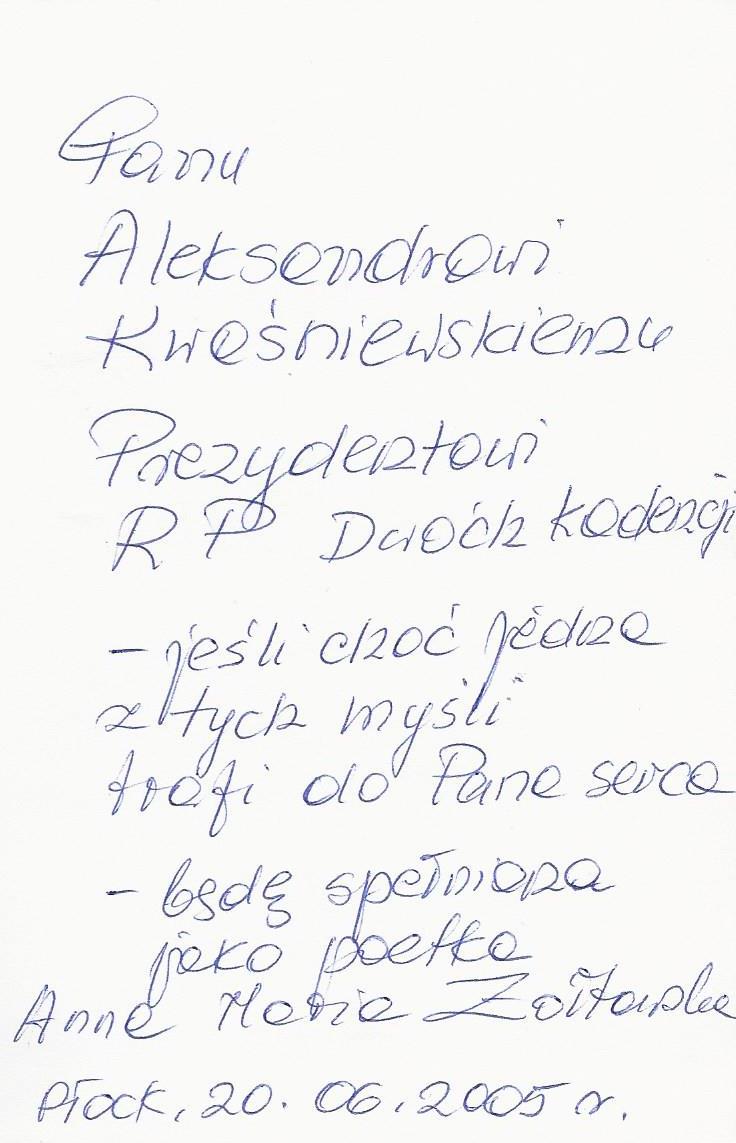 Panu
Aleksandrowi
Kwaśniewskiemu
Prezydentowi
RP Dwóch kadencji
- jeśli choć jedna
z tych myśli
trafi do Pana serca
- będę spełniona
jako poetka
Anna Maria
Płock, 20.06.2005 r.